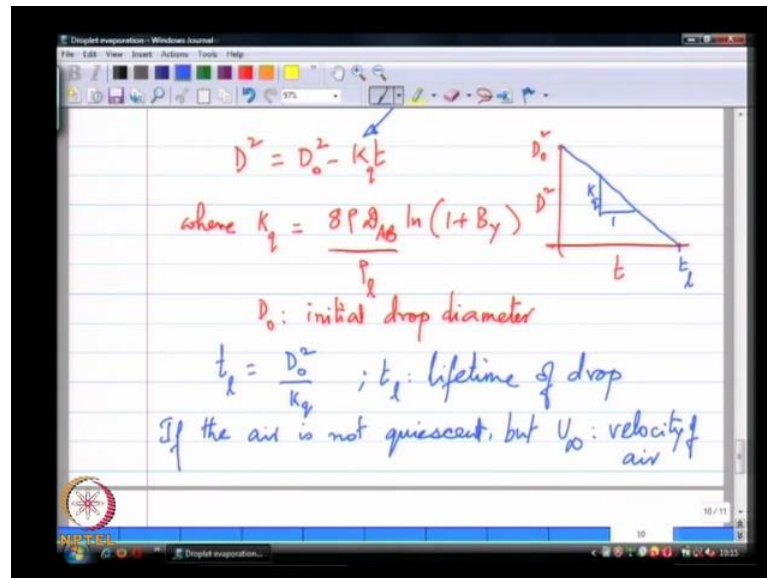 Droplet evaporation - Windows Journal
File Edit View Insert Actions Tools Help
97%
D² = D₀² - K_q t
where K_q = 8ρ𝒟_AB ln (1 + B_Y)
ρ_l
D₀²
D²
K_q
1
t
t_l
D₀: initial drop diameter
t_l = D₀² / K_q ; t_l: lifetime of drop
If the air is not quiescent, but U∞: velocity of
air
10 / 11
10
NPTEL
Droplet evaporation...
10:15